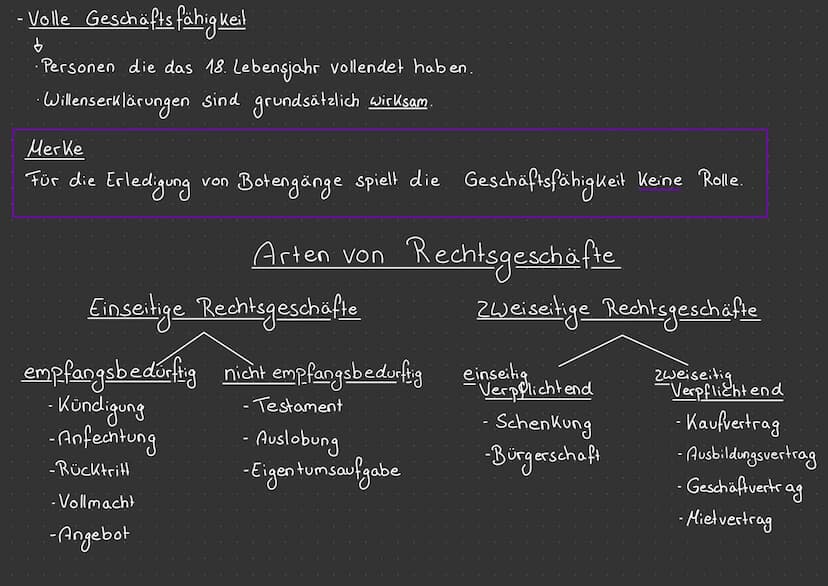 - Volle Geschäftsfähigkeit
· Personen die das 18. Lebensjahr vollendet haben.
· Willenserklärungen sind grundsätzlich wirksam.
Merke
Für die Erledigung von Botengänge spielt die Geschäftsfähigkeit keine Rolle.
Arten von Rechtsgeschäfte
Einseitige Rechtsgeschäfte
Zweiseitige Rechtsgeschäfte
empfangsbedürftig
- Kündigung
- Anfechtung
- Rücktritt
- Vollmacht
- Angebot
nicht empfangsbedurftig
- Testament
- Auslobung
- Eigentumsaufgabe
einseitig
Verpflichtend
- Schenkung
- Bürgerschaft
zweiseitig
Verpflichtend
- Kaufvertrag
- Ausbildungsvertrag
- Geschäftvertrag
- Mietvertrag